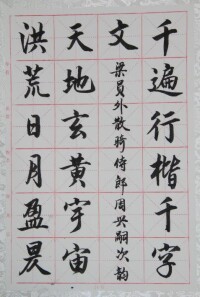 千遍行楷千字
文
梁员外散骑侍郎周兴嗣次韵
天地玄黄宇宙
洪荒日月盈昃